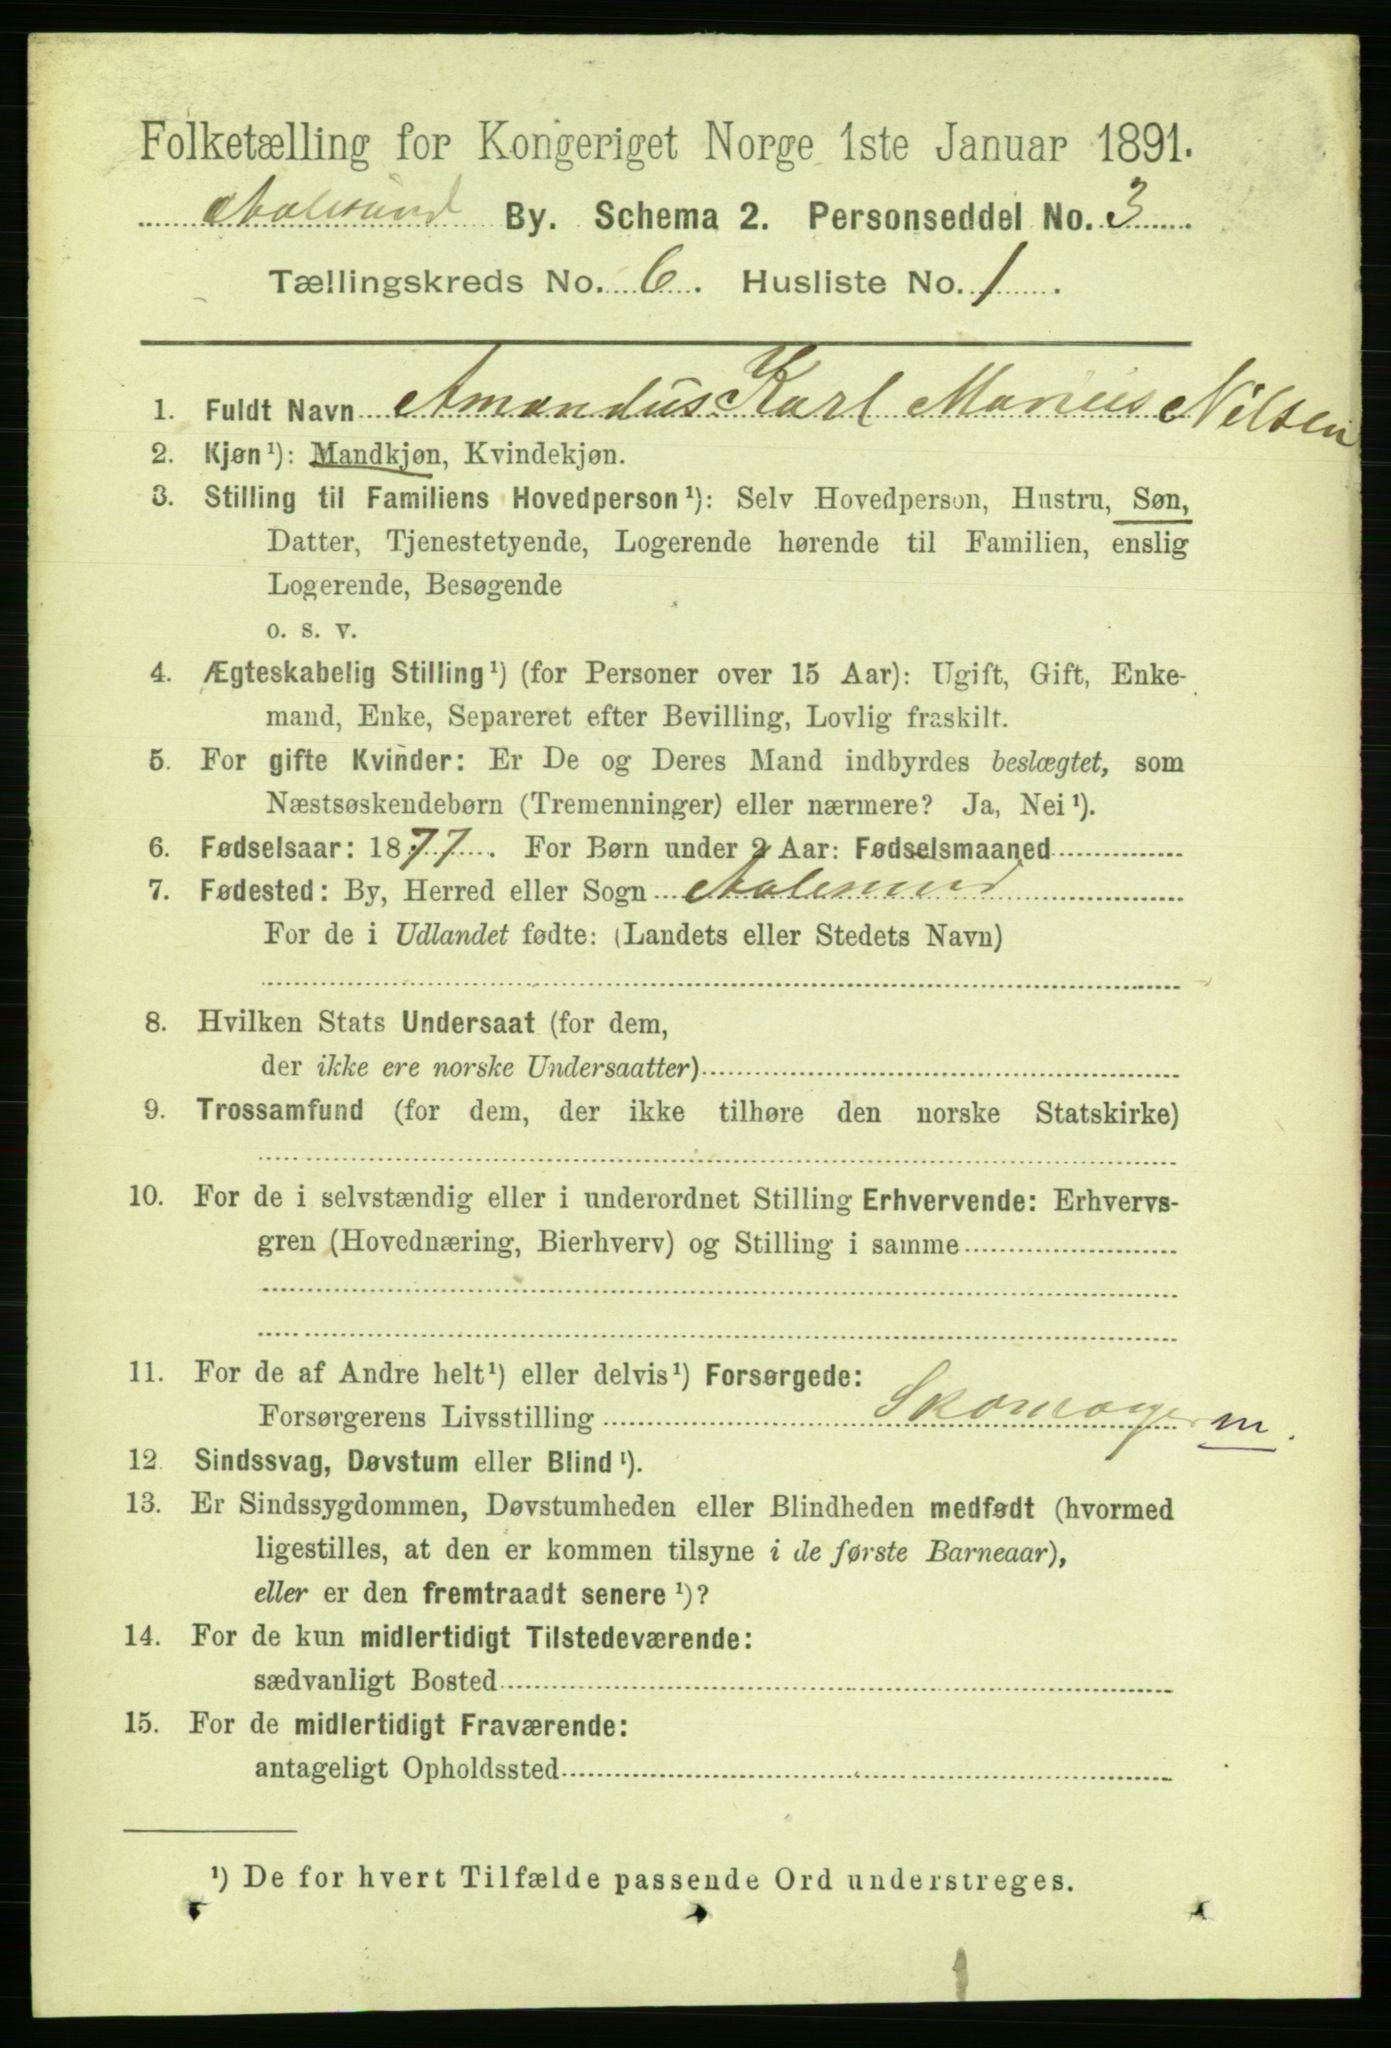 Folketælling for Kongeriget Norge 1ste Januar 1891.
Aalesund By. Schema 2. Personseddel No. 3
Tællingskreds No. 6. Husliste No. 1.
1. Fuldt Navn Amandus Karl Marius Nilsen
2. Kjøn¹): Mandkjøn, Kvindekjøn.
3. Stilling til Familiens Hovedperson¹): Selv Hovedperson, Hustru, Søn,
Datter, Tjenestetyende, Logerende hørende til Familien, enslig
Logerende, Besøgende
o. s. v.
4. Ægteskabelig Stilling¹) (for Personer over 15 Aar): Ugift, Gift, Enke-
mand, Enke, Separeret efter Bevilling, Lovlig fraskilt.
5. For gifte Kvinder: Er De og Deres Mand indbyrdes beslægtet, som
Næstsøskendebørn (Tremenninger) eller nærmere? Ja, Nei¹).
6. Fødselsaar: 1877. For Børn under 2 Aar: Fødselsmaaned
7. Fødested: By, Herred eller Sogn Aalesund
For de i Udlandet fødte: (Landets eller Stedets Navn)
8. Hvilken Stats Undersaat (for dem,
der ikke ere norske Undersaatter)
9. Trossamfund (for dem, der ikke tilhøre den norske Statskirke)
10. For de i selvstændig eller i underordnet Stilling Erhvervende: Erhvervs-
gren (Hovednæring, Bierhverv) og Stilling i samme
11. For de af Andre helt¹) eller delvis¹) Forsørgede:
Forsørgerens Livsstilling Skomager m.
12. Sindssvag, Døvstum eller Blind¹).
13. Er Sindssygdommen, Døvstumheden eller Blindheden medfødt (hvormed
ligestilles, at den er kommen tilsyne i de første Barneaar),
eller er den fremtraadt senere¹)?
14. For de kun midlertidigt Tilstedeværende:
sædvanligt Bosted
15. For de midlertidigt Fraværende:
antageligt Opholdssted
¹) De for hvert Tilfælde passende Ord understreges.